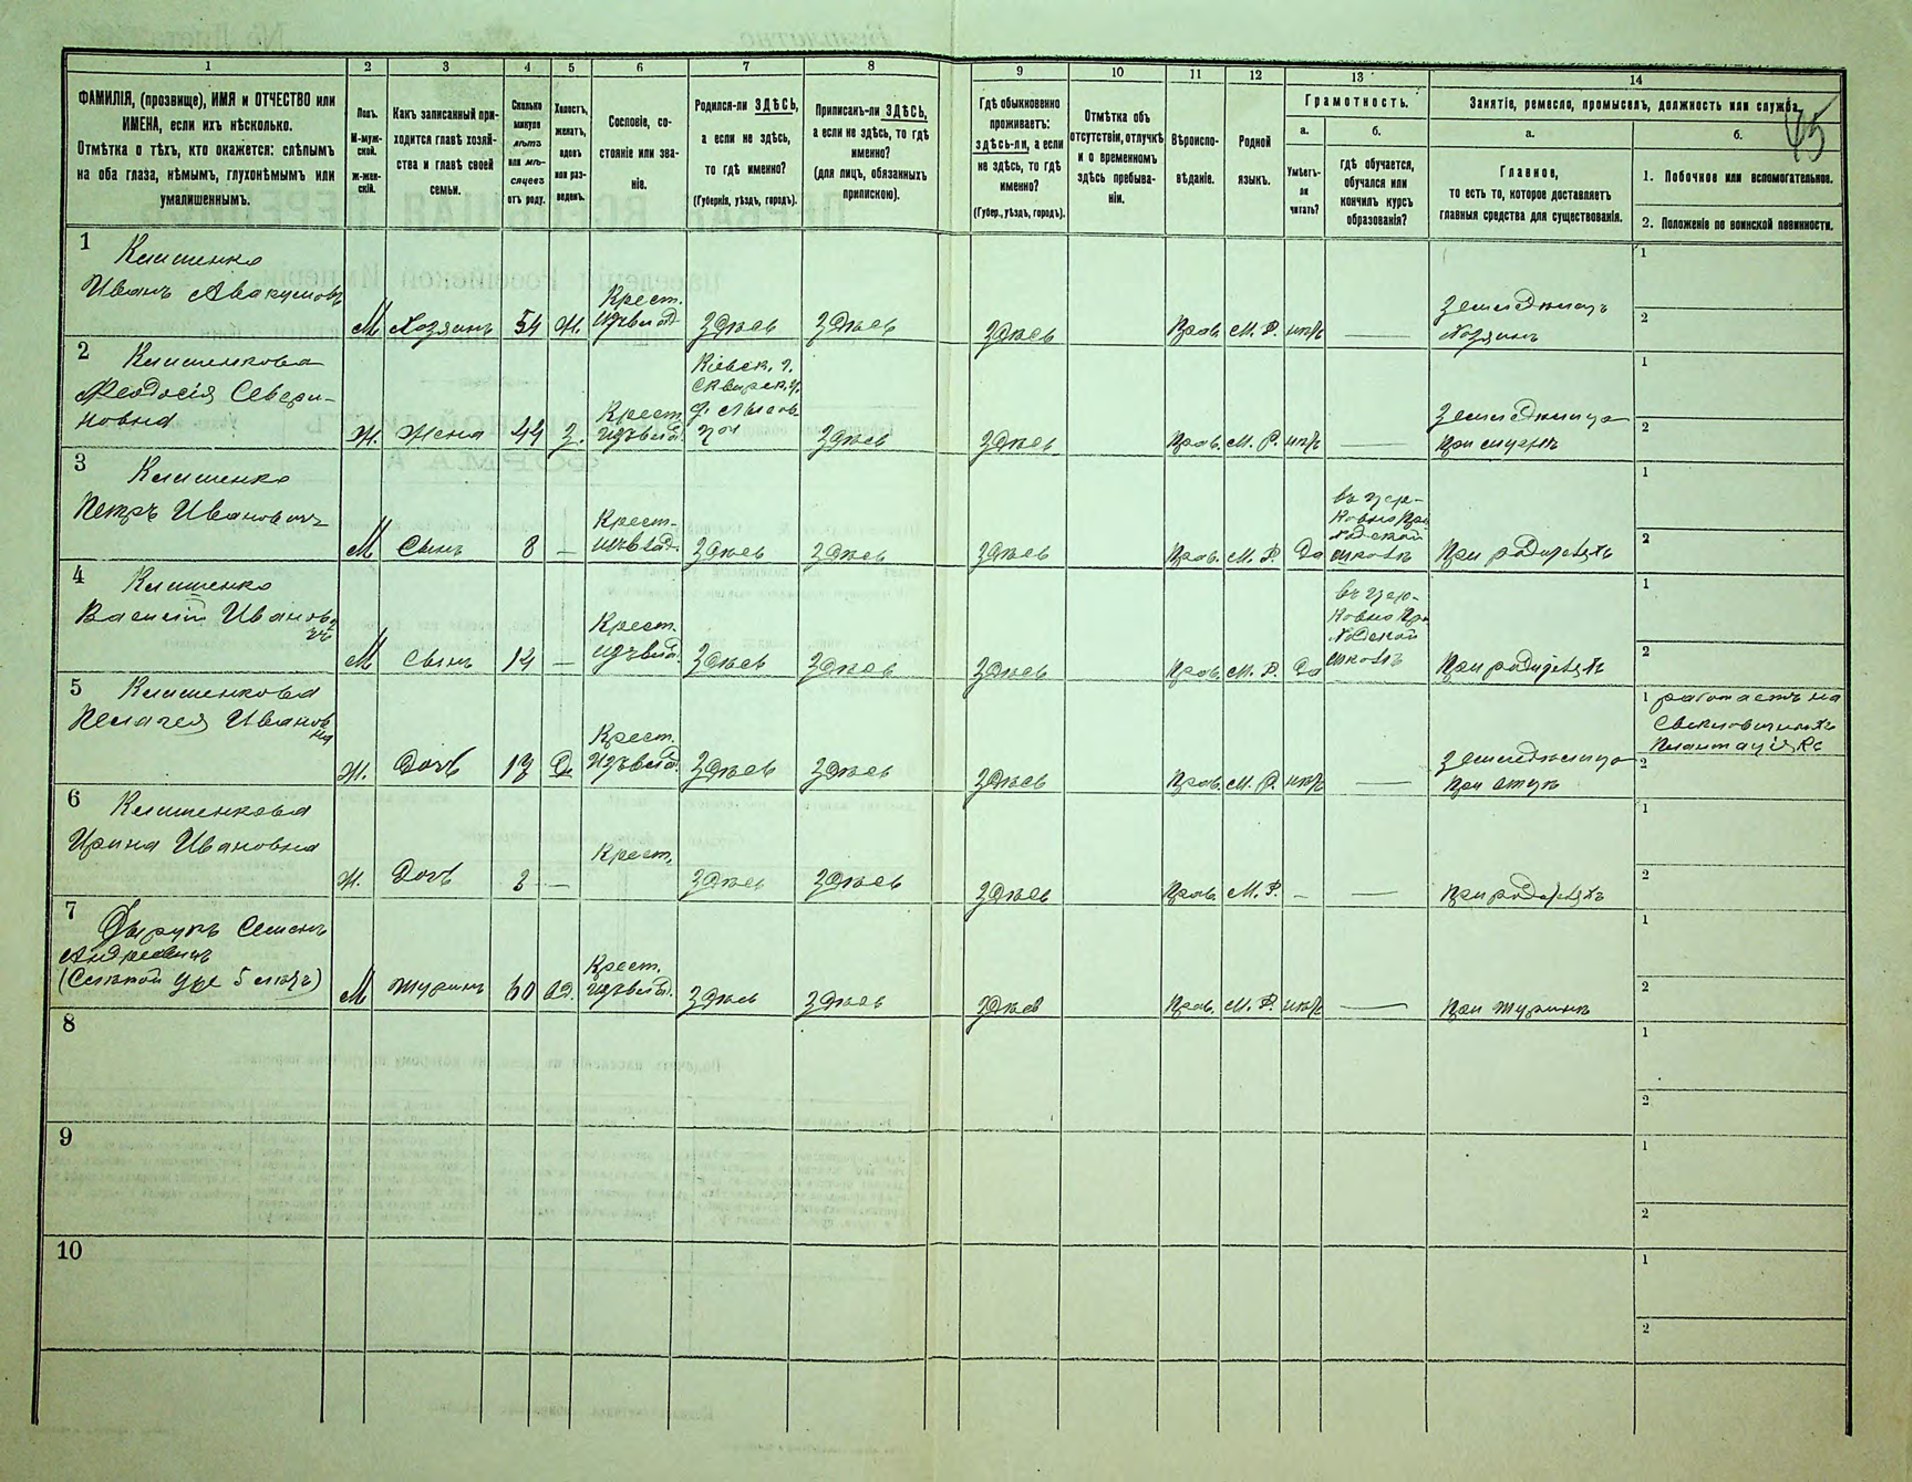 1 2 3 4 5 6 7 8 9 10 11 12 13 14
ФАМИЛІЯ, (прозвище), ИМЯ и ОТЧЕСТВО или
ИМЕНА, если ихъ нѣсколько.
Отмѣтка о тѣхъ, кто окажется: слѣпымъ
на оба глаза, нѣмымъ, глухонѣмымъ или
умалишеннымъ.
Полъ.
М-муж-
ской.
Ж-жен-
скій.
Какъ записанный при-
ходится главѣ хозяй-
ства и главѣ своей
семьи.
Сколько
минуло
лѣтъ
или мѣ-
сяцевъ
отъ роду.
Холостъ,
женатъ,
вдовъ
или раз-
веденъ.
Сословіе, со-
стояніе или зва-
ніе.
Родился-ли ЗДѢСЬ,
а если не здѣсь,
то гдѣ именно?
(Губернія, уѣздъ, городъ).
Приписанъ-ли ЗДѢСЬ,
а если не здѣсь, то гдѣ
именно?
(для лицъ, обязанныхъ
припискою).
Гдѣ обыкновенно
проживаетъ:
здѣсь-ли, а если
не здѣсь, то гдѣ
именно?
(Губер., уѣздъ, городъ).
Отмѣтка объ
отсутствіи, отлучкѣ
и о временномъ
здѣсь пребыва-
ніи.
Вѣроиспо-
вѣданіе.
Родной
языкъ.
Грамотность.
а.
Умѣетъ-
ли
читать?
б.
гдѣ обучается,
обучался или
кончилъ курсъ
образованія?
Занятіе, ремесло, промыселъ, должность или служба.
45
а.
Главное,
то есть то, которое доставляетъ
главныя средства для существованія.
б.
1. Побочное или вспомогательное.
2. Положеніе по воинской повинности.
1
Клименко
Иванъ Авакумовъ
М Хозяинъ 54 Ж.
Крест.
Здѣсь Здѣсь Здѣсь Прав. М. Р. нѣтъ —
Земледѣлецъ
Хозяинъ
1
2
2
Клименкова
Феодосія Севери-
новна
Ж. Жена 44 З.
Крест.
Кіевск. г.
Сквирск. у.
Здѣсь Здѣсь Прав. М. Р. нѣтъ —
Земледѣлица
При мужѣ
1
2
3
Клименко
Петръ Ивановичъ
М Сынъ 8 —
Крест.
Здѣсь Здѣсь Здѣсь Прав. М. Р. Да
въ цер-
ковно При
ходской
школѣ
При родителяхъ
1
2
4
Клименко
Василій Иванови
чъ
М Сынъ 14 —
Крест.
Здѣсь Здѣсь Здѣсь Прав. М. Р. Да
въ цер-
ковно При
ходской
школѣ
При родителяхъ
1
2
5
Клименкова
Пелагея Иванов
на
Ж. Дочь 17 Д.
Крест.
Здѣсь Здѣсь Здѣсь Прав. М. Р. нѣтъ —
Земледѣлица
При отцѣ
1 работаетъ на
Свекловичныхъ
Плантаціяхъ
2
6
Клименкова
Ирина Ивановна
Ж. Дочь 3 —
Крест.
Здѣсь Здѣсь Здѣсь Прав. М. Р. — —
При родителяхъ
1
2
7
Семенъ
Андреевичъ
(Слѣпой уже 5 лѣтъ)
М Шуринъ 60
Крест.
Здѣсь Здѣсь Здѣсь Прав. М. Р. нѣтъ —
При шуринѣ
1
2
8
1
2
9
1
2
10
1
2